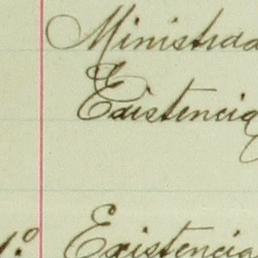 Ministrad
Existencia
1º. Existencia